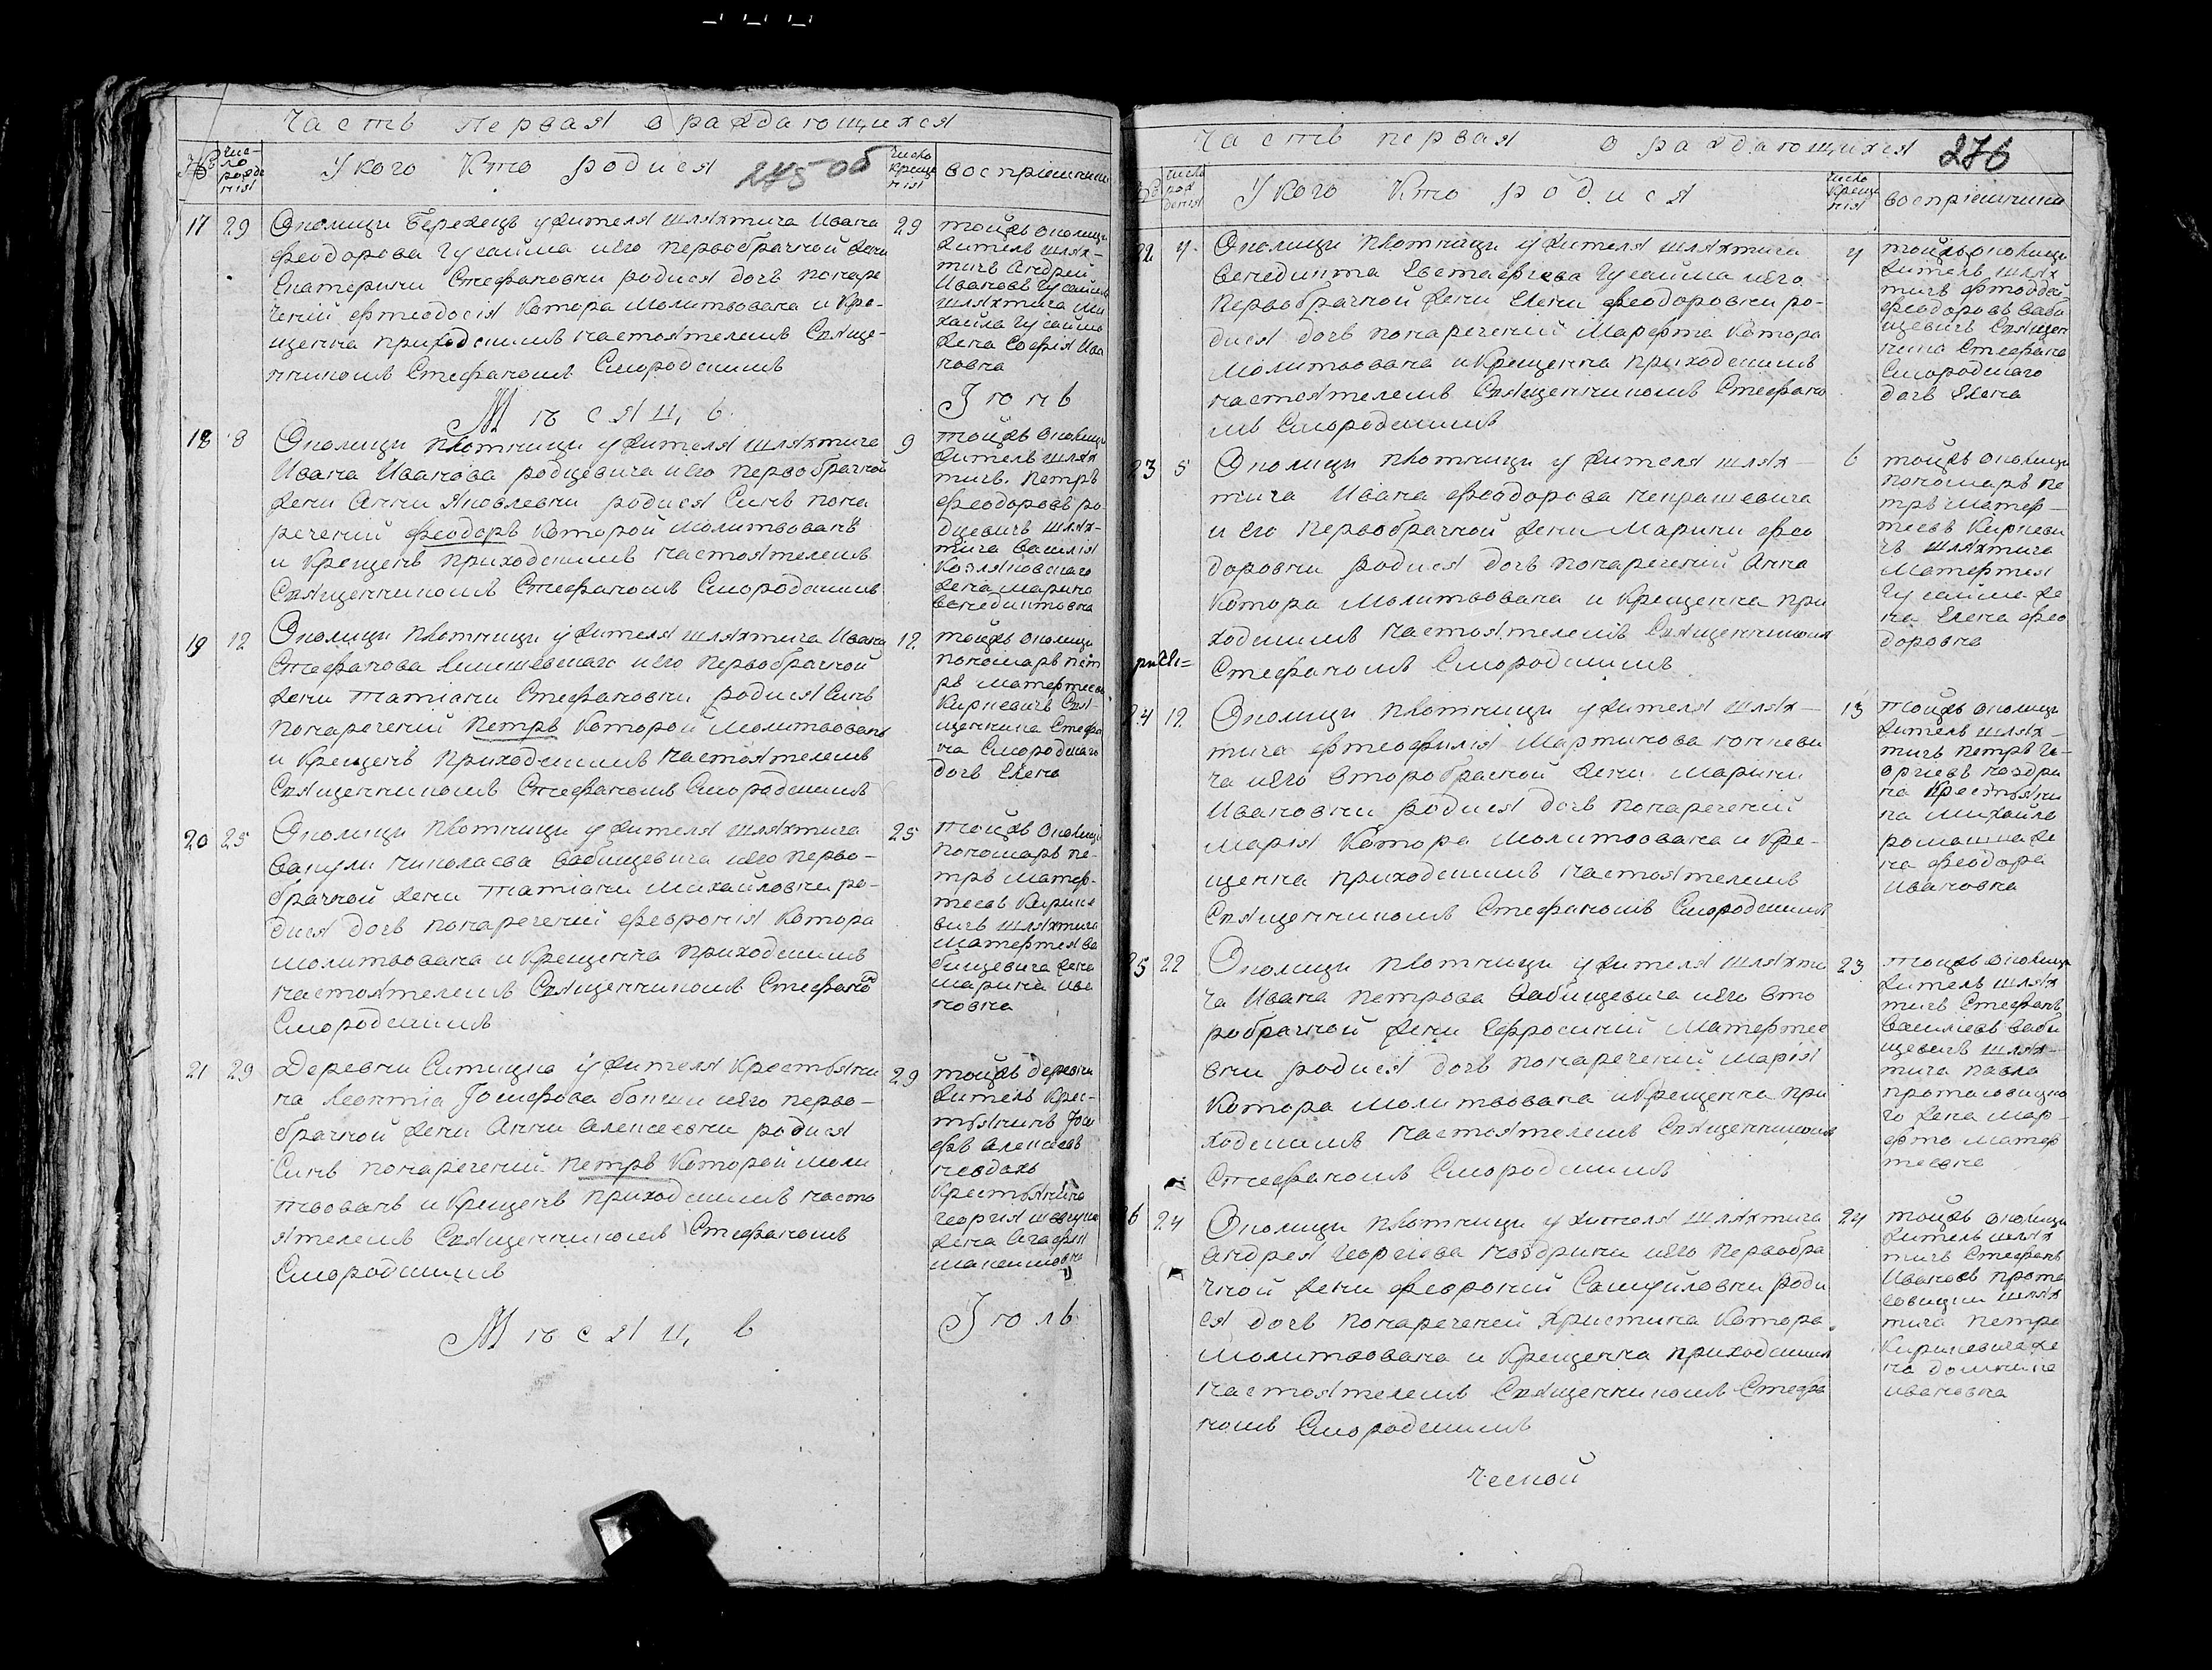 Часть первая о раждающихся
№ Число рожденія
У кого кто родися
275 об
Число крещенія
воспріемники
17 29
Околицы Бережецъ у жителя шляхтича Ивана
Феодорова Гусайма и его первобрачной жены
Екатерины Стефановны родися дочь нопаре
ченій Фтеодосія котора молитвована и кре-
щенна приходскимъ настоятелемъ Свяще-
нникомъ Стефаномъ Смородскимъ
29
тойжъ околицы
житель шлях-
тичъ Андрей
Ивановъ Гусаимъ
шляхтича Ми
хайла Гусайма
жена Софія Ива
новна
Мѣсяцъ
Іюнь
18 8
Околицы Плотницы у жителя шляхтича
Ивана Иванова родцевича и его первобрачной
жены Анны Яковлевны родися Сынъ пона
реченій Феодоръ которой молитвованъ
и крещенъ приходскимъ настоятелемъ
Священникомъ Стефаномъ Смородскимъ
9
тойжъ околицы
житель шлях
тичъ Петръ
Феодоровъ ро-
дцевичъ шлях-
тича Василія
Козляковскаго
жена Марина
Венедиктовна
19 12
Околицы Плотницы у жителя шляхтича Ивана
Стефанова и его первобрачной
жены Татіаны Стефановны родися Сынъ
понареченій Петръ которой молитвованъ
и крещенъ приходскимъ настоятелемъ
Священникомъ Стефаномъ Смородскимъ
12
тойжъ околицы
пономаръ Пет
ръ Матфтеевъ
Кирневичъ Свя-
щенника Стефа
на Смородскаго
дочь Елена
20 25
Околицы Плотницы у жителя шляхтича
Вакулы Николаева Вабищевича и его перво-
брачной жены Татіаны Михайловны ро-
дися дочь понареченій Февронія котора
молитвована и крещенна приходскимъ
настоятелемъ Священникомъ Стефано
Смородскимъ
25
тойжъ околицы
пономаръ Пе-
тръ Матф-
теевъ Кирне
вичъ шляхтича
Матфтея Ва
бищевича жена
Марина Ива
новна
21 29
Деревни Ситицка у жителя крестьяни
на Леонтія Іосифова и его перво-
брачной жены Анны Алексеевны родися
Сынъ понареченій Петръ которой моли
твованъ и крещенъ приходскимъ насто
ятелемъ Священникомъ Стефаномъ
Смородскимъ
29
тойжъ деревни
житель крес-
тьянинъ Іоси
фъ Алексеевъ
крестьянина
Георгія
жена Агафія
Максимовна
Мѣсяцъ
Іюль
Часть первая о раждающихся
276
№ Число рожденія
У кого кто родися
Число крещенія
воспріемники
22 4
Околицы Плотницы у жителя шляхтича
Венедикта Евстафіева Гусайма и его
первобрачной жены Елены Феодоровны ро-
дися дочь понареченій Марфта котора
молитвована и крещенна приходскимъ
настоятелемъ Священникомъ Стефано
мъ Смородскимъ
4
тойжъ околицы
житель шлях
тичъ
Феодоровъ Ваби
щевичъ Священ
ника Стефана
Смородскаго
дочь Елена
23 5
Околицы Плотницы у жителя шлях-
тича Ивана Феодорова Некрашевича
и его первобрачной жены Марины Фео
доровны родися дочь понареченій Анна
котора молитвована и крещенна при
ходскимъ настоятелемъ Священникомъ
Стефаномъ Смородскимъ
6
тойжъ околицы
пономаръ Пе
тръ Матф-
теевъ Кирневи
чъ шляхтича
Матфтея
Гусайма же
на Елена Фео
доровна
24 12
Околицы Плотницы у жителя шлях-
тича Фтеофилія Мартинова
ча и его второбрачной жены Марины
Ивановны родися дочь понареченій
Марія котора молитвована и кре-
щенна приходскимъ настоятелемъ
Священникомъ Стефаномъ Смородскимъ
13
тойжъ околицы
житель шлях-
тичъ Петръ Ге-
оргіевъ Ноздри
на крестьяни
на Михайла
Романа же
на Феодора
Ивановна
25 22
Околицы Плотницы у жителя шляхти
ча Ивана Петрова Вабищевича и его вто
робрачной жены Ефросиній Матфтее
вны родися дочь понареченій Марія
котора молитвована и крещенна при
ходскимъ настоятелемъ Священникомъ
Стефаномъ Смородскимъ
23
тойжъ околицы
житель шлях
тичъ Стефанъ
Василіевъ Ваби
щевичъ шлях-
тича Павла
Протасовицко
го жена Мар-
фта Матф
теевна
26 24
Околицы Плотницы у жителя шляхтича
Андрея Георгіева Ноздрини и его первобра
чной жены Февроній Самуйловны роди
ся дочь понареченій Христина котора
молитвована и крещенна приходскимъ
настоятелемъ Священникомъ Стефа
номъ Смородскимъ
24
тойжъ околицы
житель шлях
тичъ Стефанъ
Ивановъ Прота
совицки шлях
тича Петра
Кирневича же
на Домникія
Ивановна